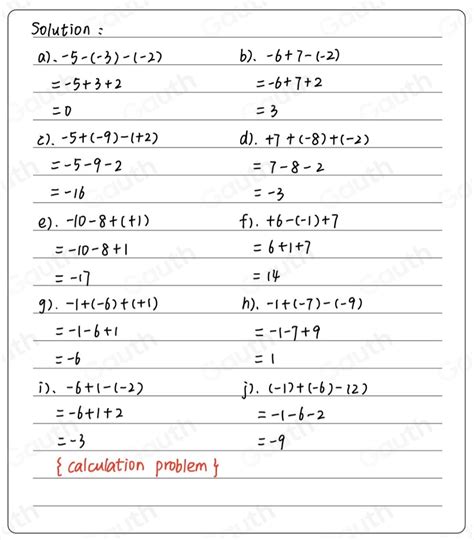 Solution :
a). -5-(-3)-(-2)
=-5+3+2
=0
b). -6+7-(-2)
=-6+7+2
=3
c). -5+(-9)-(+2)
=-5-9-2
=-16
d). +7+(-8)+(-2)
= 7-8-2
= -3
e). -10-8+(+1)
=-10-8+1
=-17
f). +6-(-1)+7
= 6+1+7
= 14
g). -1+(-6)+(+1)
=-1-6+1
=-6
h). -1+(-7)-(-9)
=-1-7+9
= 1
i). -6+1-(-2)
=-6+1+2
=-3
j). (-1)+(-6)-(2)
=-1-6-2
=-9
{ calculation problem }
Gauth